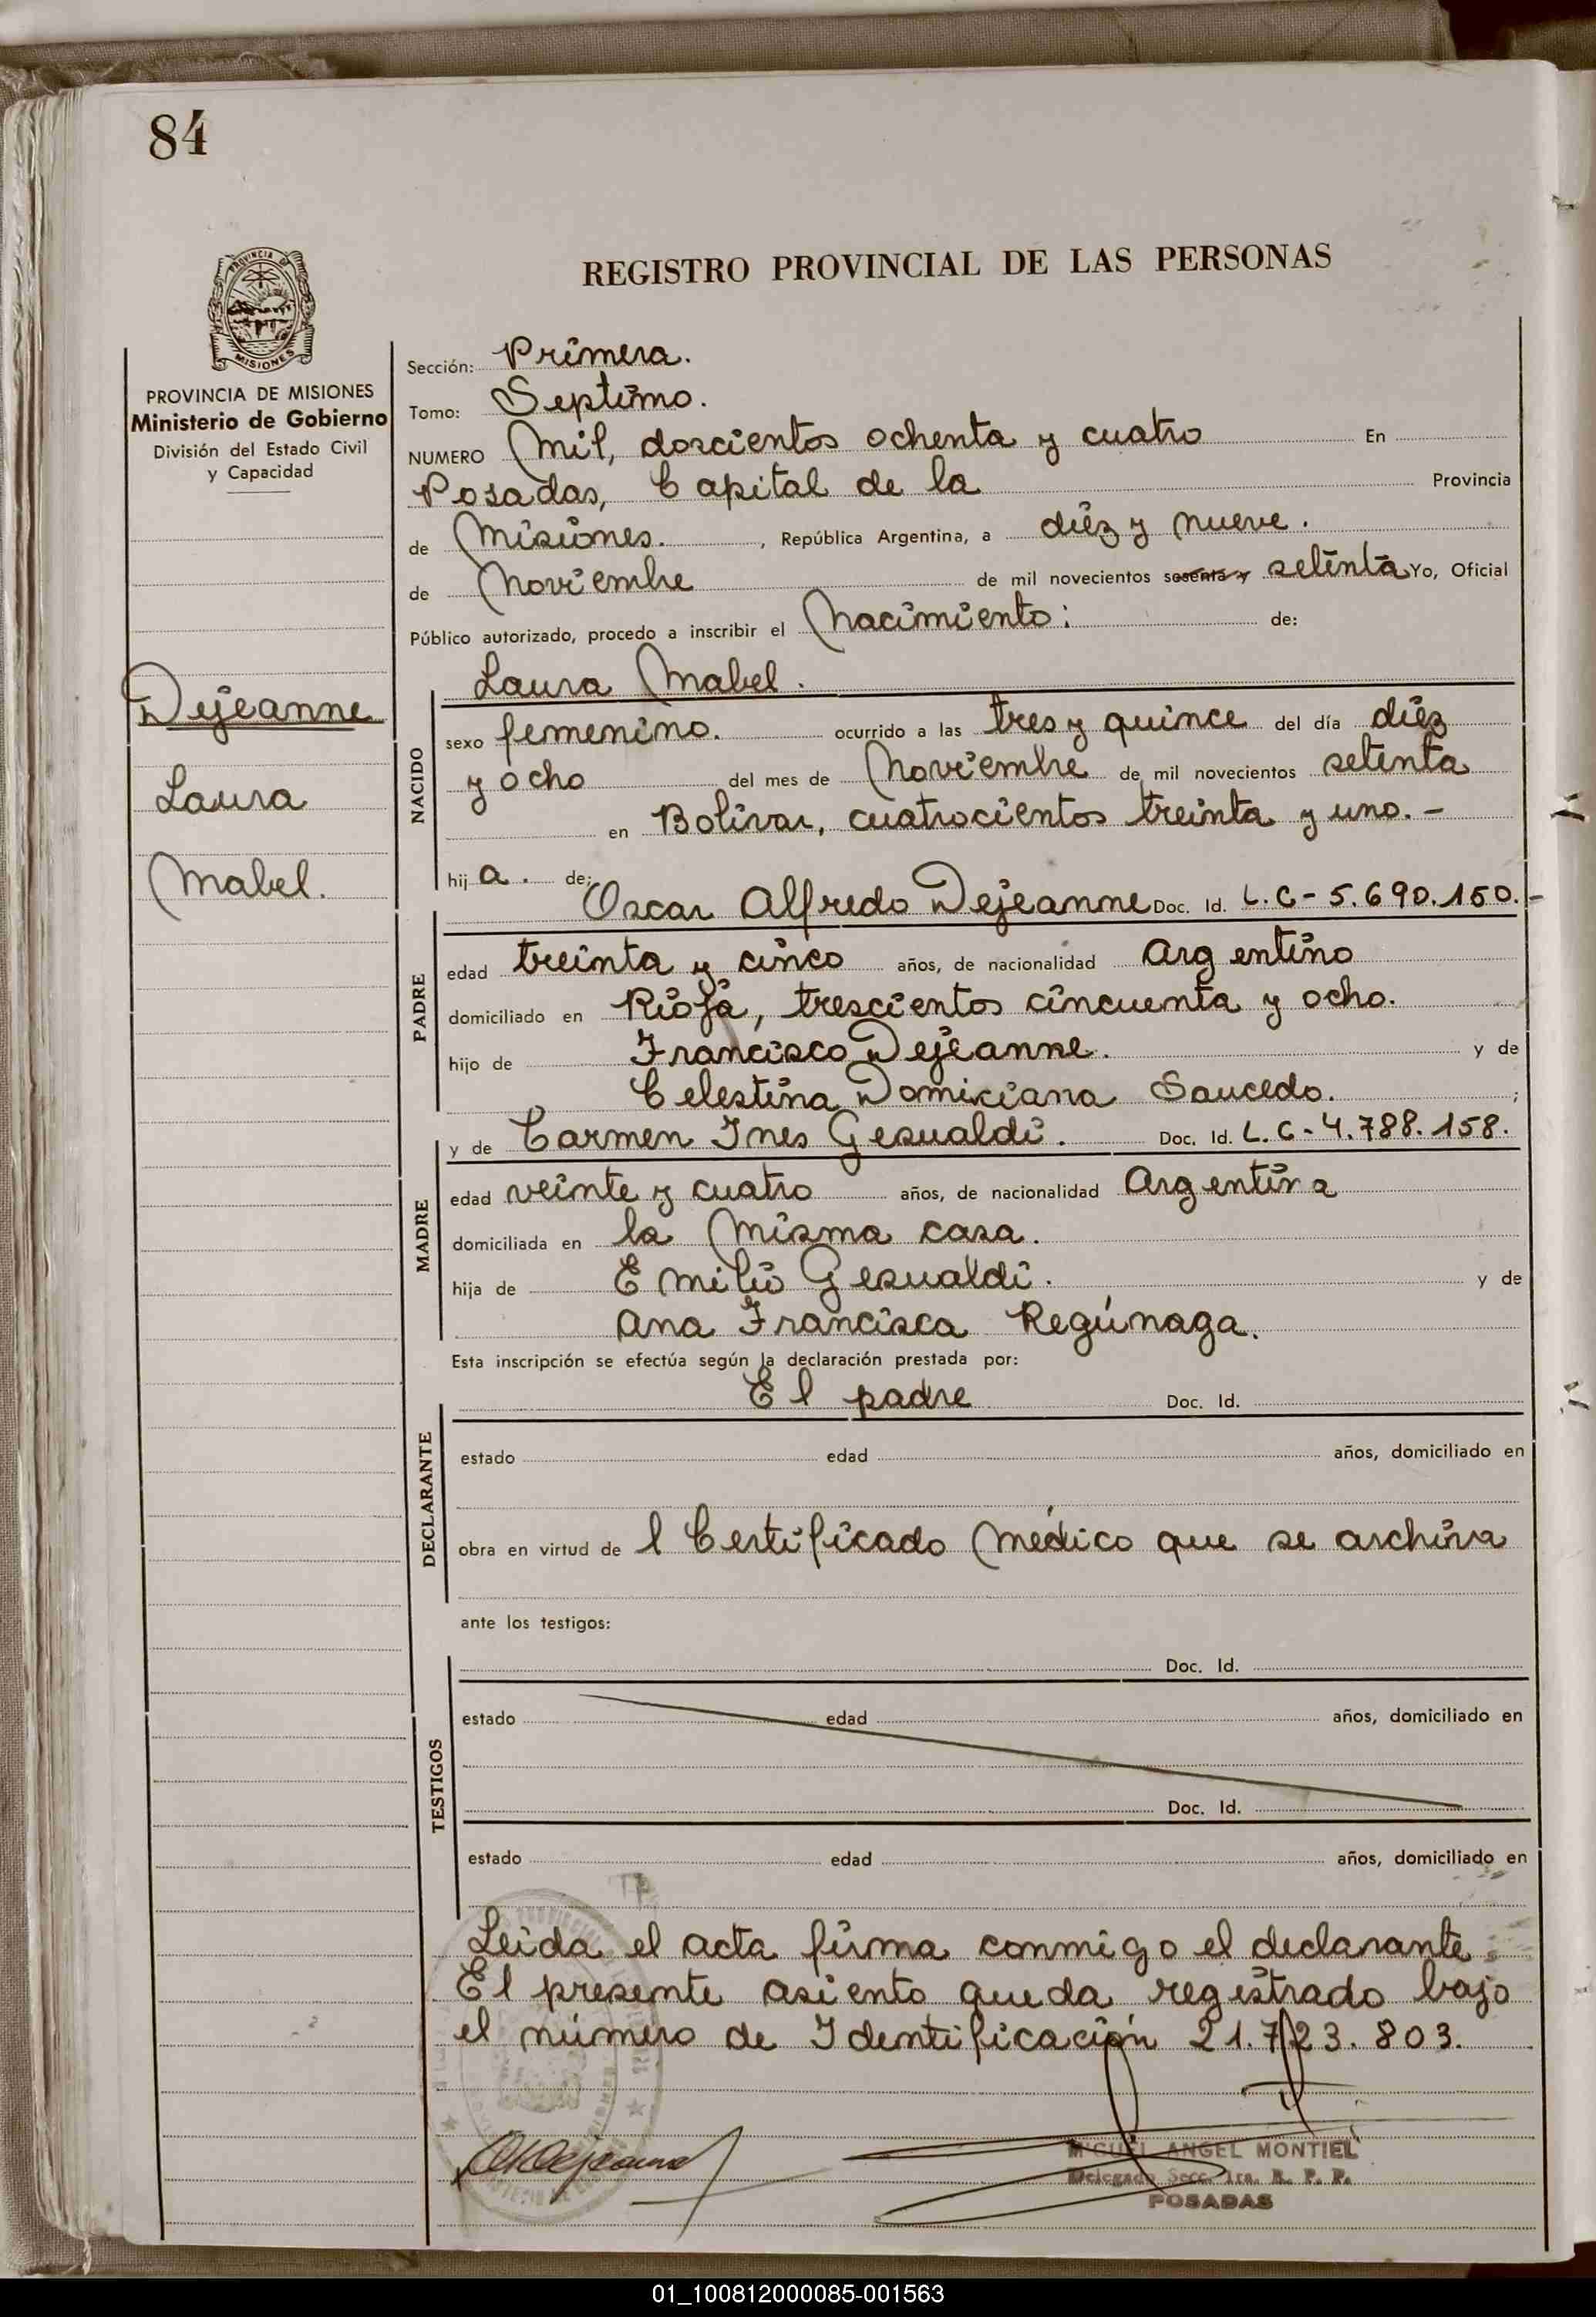 84
REGISTRO PROVINCIAL DE LAS PERSONAS
PROVINCIA DE MISIONES
PROVINCIA DE MISIONES
Ministerio de Gobierno
División del Estado Civil
y Capacidad
Dejeanne
Laura
Mabel.
Sección: Primera.
Tomo: Septimo.
NUMERO Mil, doscientos ochenta y cuatro En
Posadas, Capital de la Provincia
de Misiones. , República Argentina, a diéz y nueve.
de Noviembre de mil novecientos sesenta y setenta Yo, Oficial
Público autorizado, procedo a inscribir el Nacimiento: de:
Laura Mabel.
NACIDO
sexo femenino. ocurrido a las tres y quince del día diéz
y ocho del mes de Noviembre de mil novecientos setenta
en Bolivar, cuatrocientos treinta y uno. -
hij a. de:
PADRE
Oscar Alfredo Dejeanne Doc. Id. L. C - 5.690.150.-
edad treinta y cinco años, de nacionalidad Argentino
domiciliado en Rioja, trescientos cincuenta y ocho.
hijo de Francisco Dejeanne. y de
Celestina Domiciana Saucedo. ;
MADRE
y de Carmen Ines Gesualdi. Doc. Id. L. C - 4.788.158.
edad veinte y cuatro años, de nacionalidad Argentina
domiciliada en la misma casa.
hija de Emilio Gesualdi. y de
Ana Francisca Regúnaga.
Esta inscripción se efectúa según la declaración prestada por:
DECLARANTE
El padre Doc. Id.
estado edad años, domiciliado en
obra en virtud de l Certificado Médico que se archiva
ante los testigos:
TESTIGOS
Doc. Id.
estado edad años, domiciliado en
Doc. Id.
estado edad años, domiciliado en
Leida el acta firma conmigo el declarante.
El presente asiento queda registrado bajo
el número de Identificación 21.723.803.
MIGUEL ANGEL MONTIEL
Delegado Secc. 1ra. R. P. P.
POSADAS
01_100812000085-001563